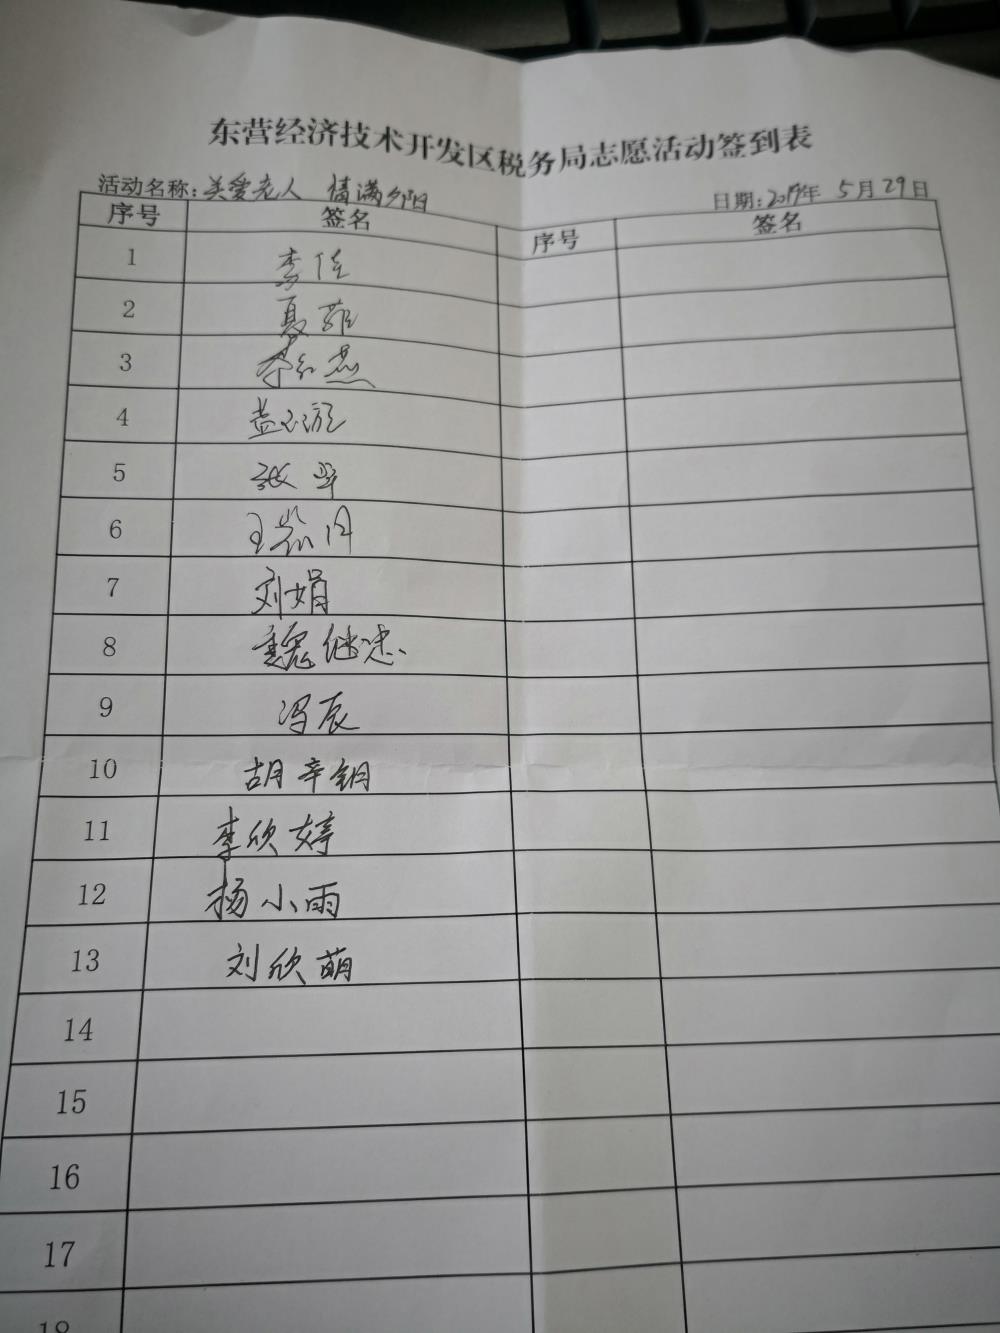 东营经济技术开发区税务局志愿活动签到表
活动名称：关爱老人 情满夕阳 日期：2019年 5月29日
序号 签名 序号 签名
1 李佳
2 夏菲
3 李红燕
4 孟
5 张
6 王
7 刘娟
8 魏继忠
9 冯辰
10 胡辛钥
11 李欣婷
12 杨小雨
13 刘欣萌
14
15
16
17
18